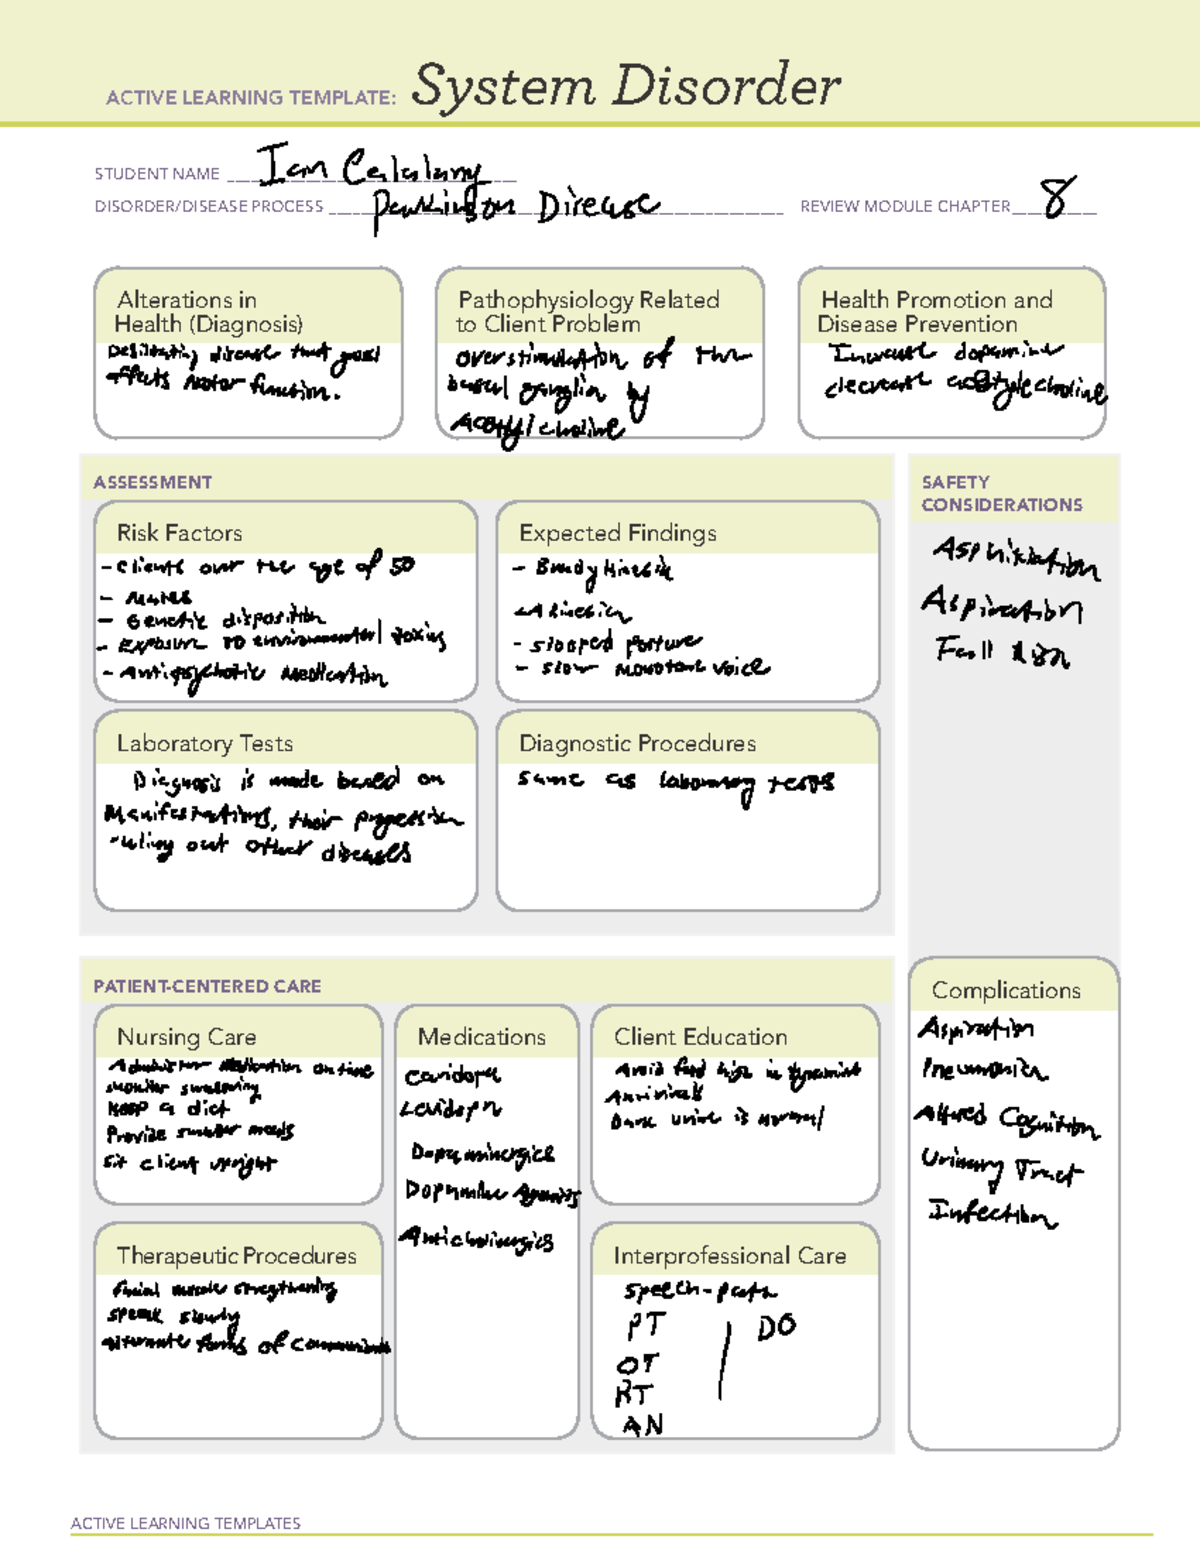 ACTIVE LEARNING TEMPLATE: System Disorder
STUDENT NAME Ian
DISORDER/DISEASE PROCESS Parkinson Disease
REVIEW MODULE CHAPTER 8
Alterations in
Health (Diagnosis)
Debilitating disease that
affects motor function.
Pathophysiology Related
to Client Problem
overstimulation of the
basal ganglia by
Acetylcholine
Health Promotion and
Disease Prevention
Increase dopamine
decrease acetylcholine
ASSESSMENT
SAFETY
CONSIDERATIONS
Asphixiation
Aspiration
Fall risk
Risk Factors
- Clients over the age of 50
- Males
- Genetic disposition
- Exposure to environmental toxins
- Antipsychotic Medication
Expected Findings
- Bradykinesia
- Akinesia
- Stooped posture
- Slow monotone voice
Laboratory Tests
Diagnosis is made based on
Manifestations, their progression
ruling out other diseases
Diagnostic Procedures
Same as laboratory tests
PATIENT-CENTERED CARE
Nursing Care
Administer Medication on time
monitor swallowing
Keep a diet
Provide smaller meals
Sit client upright
Medications
Caridopa
Levidopa
Dopaminergics
Dopamine Agonists
Anticholinergics
Client Education
Avoid food high in
Dark urine is normal
Complications
Aspiration
Pneumonia
Altered Cognition
Urinary Tract
Infection
Therapeutic Procedures
facial muscle strengthening
speak slowly
alternate forms of
Interprofessional Care
Speech-path
PT
DO
OT
RT
AN
ACTIVE LEARNING TEMPLATES